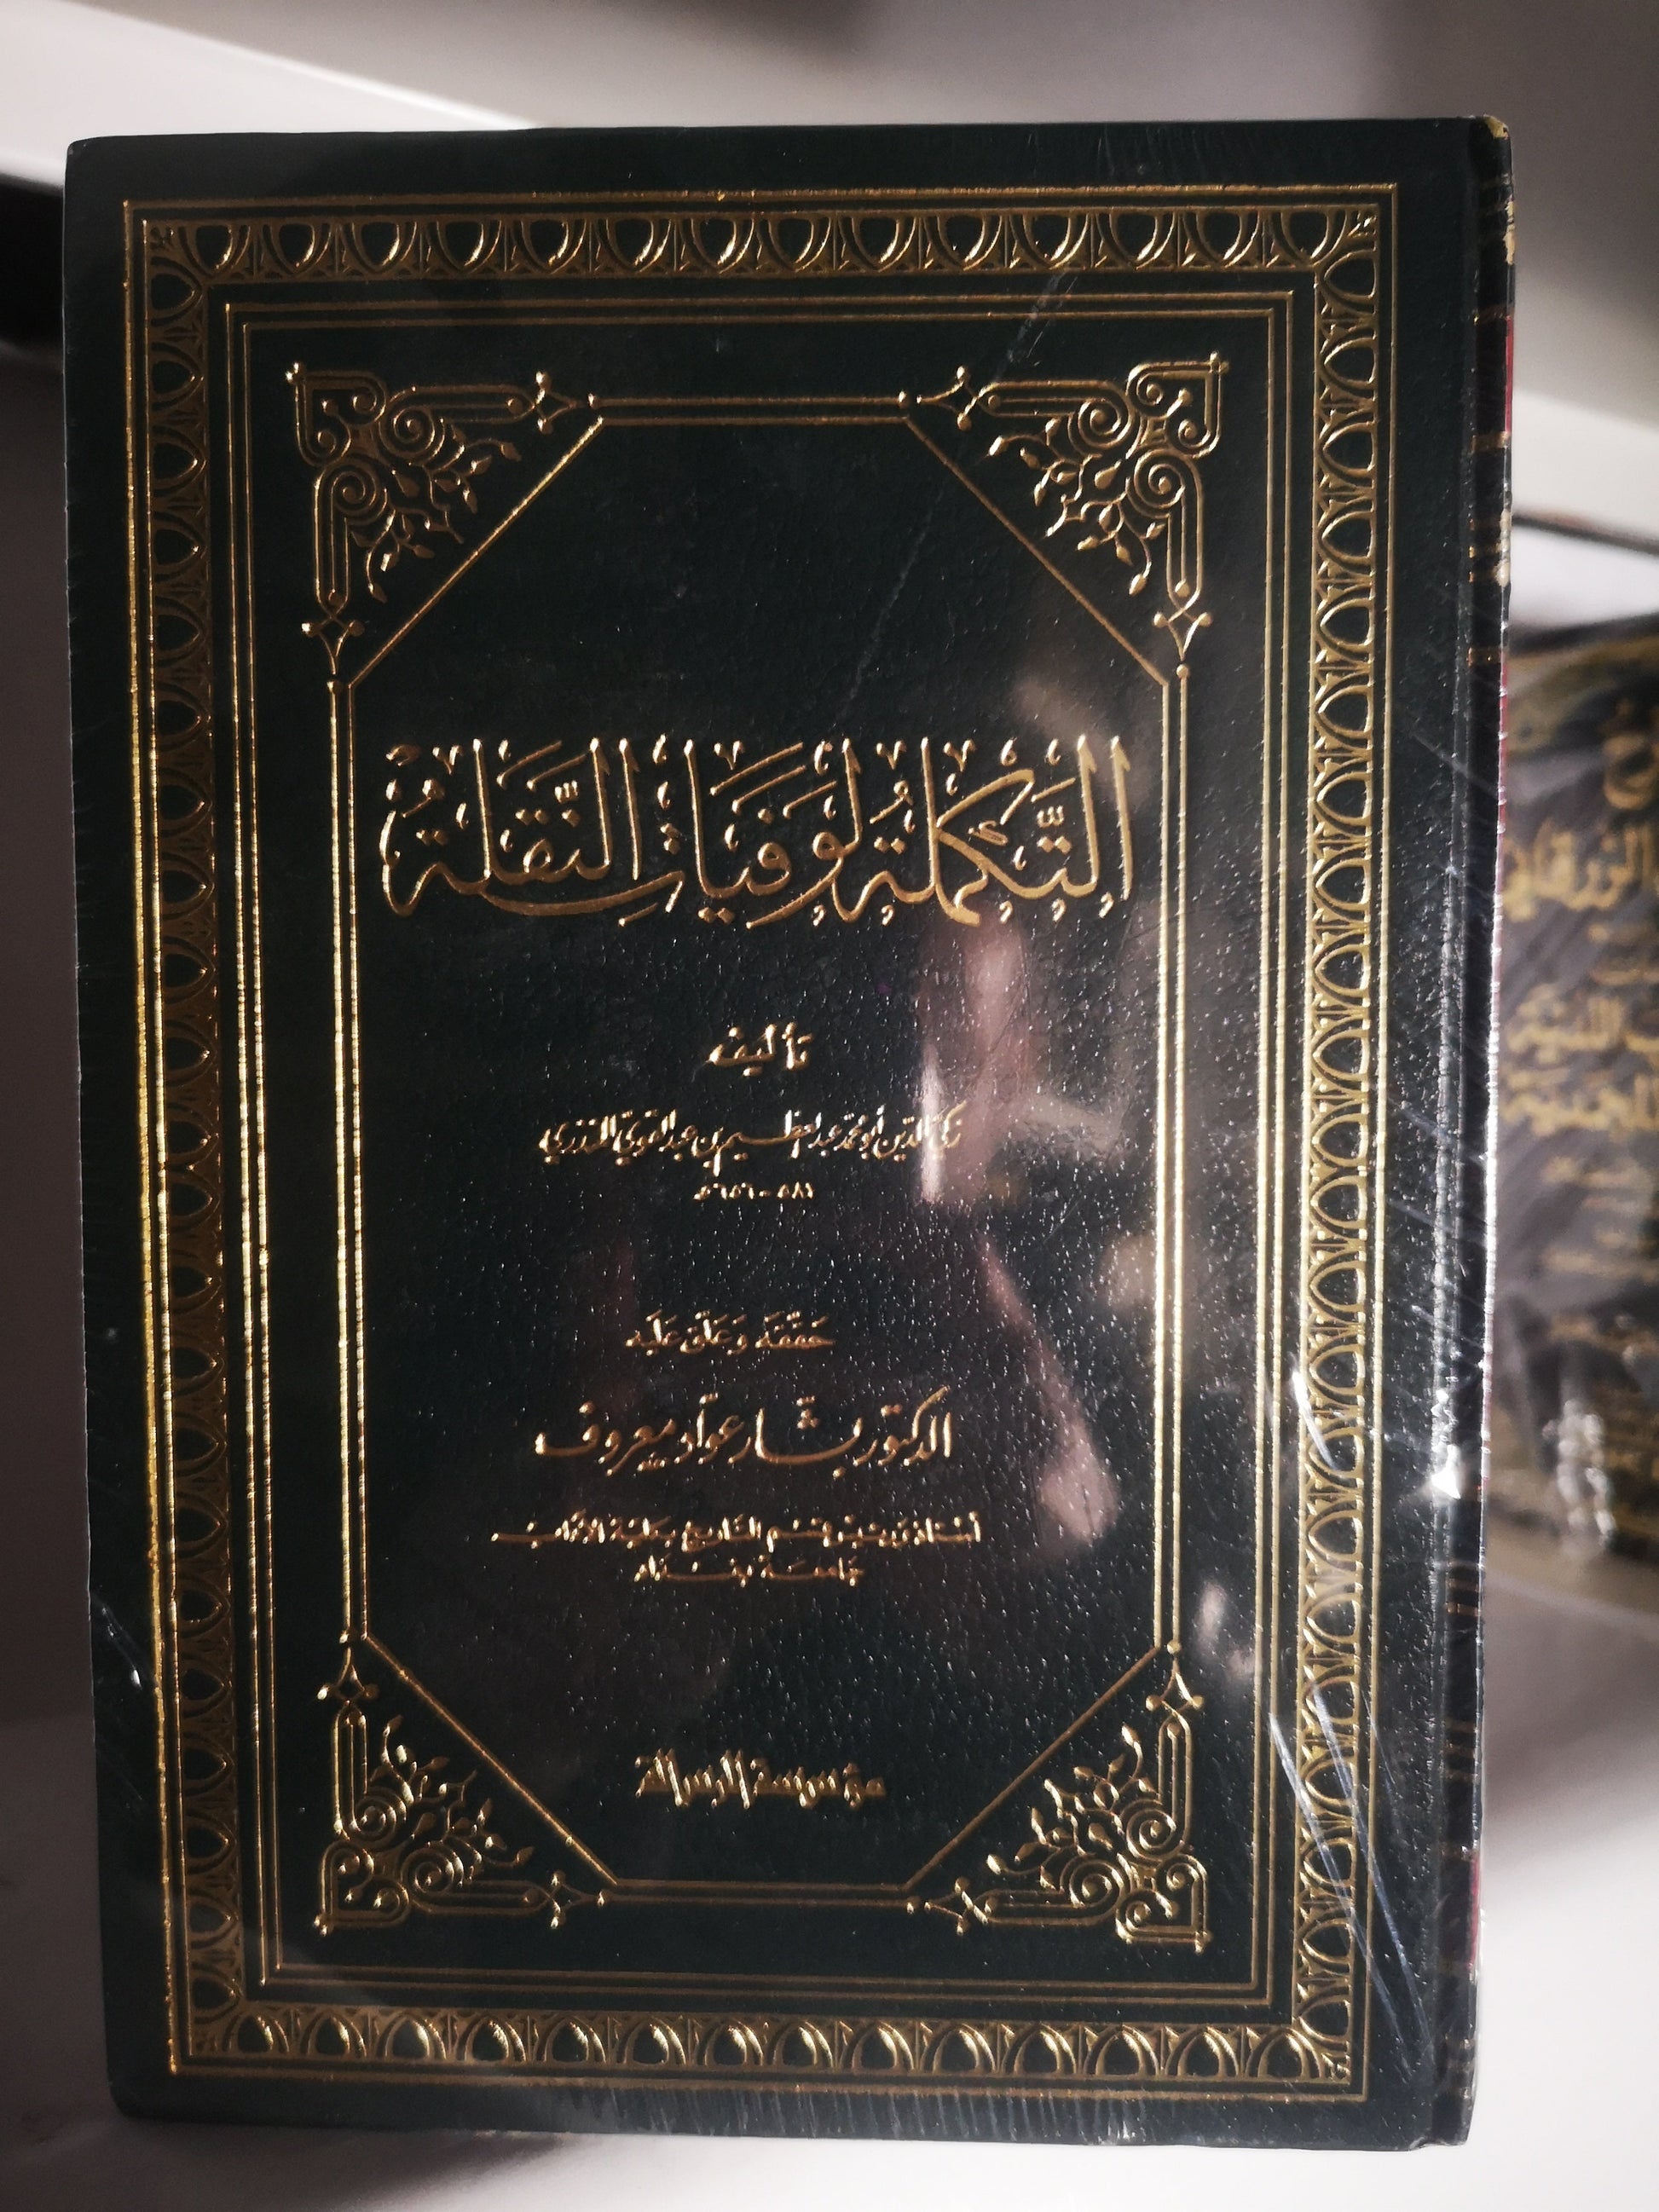 التَّكْمِلَةُ لِوَفَيَاتِ النَّقَلَةِ
تأليف
زكي الدين أبو محمد عبد العظيم بن عبد القوي المنذري
٥٨١ - ٦٥٦ هـ
حَقّقهُ وَعَلّق عَليه
الدكتور بشار عواد معروف
أستاذ ورئيس قسم التاريخ بكلية الآداب
جامعة بغداد
مؤسسة الرسالة
الزرقاني